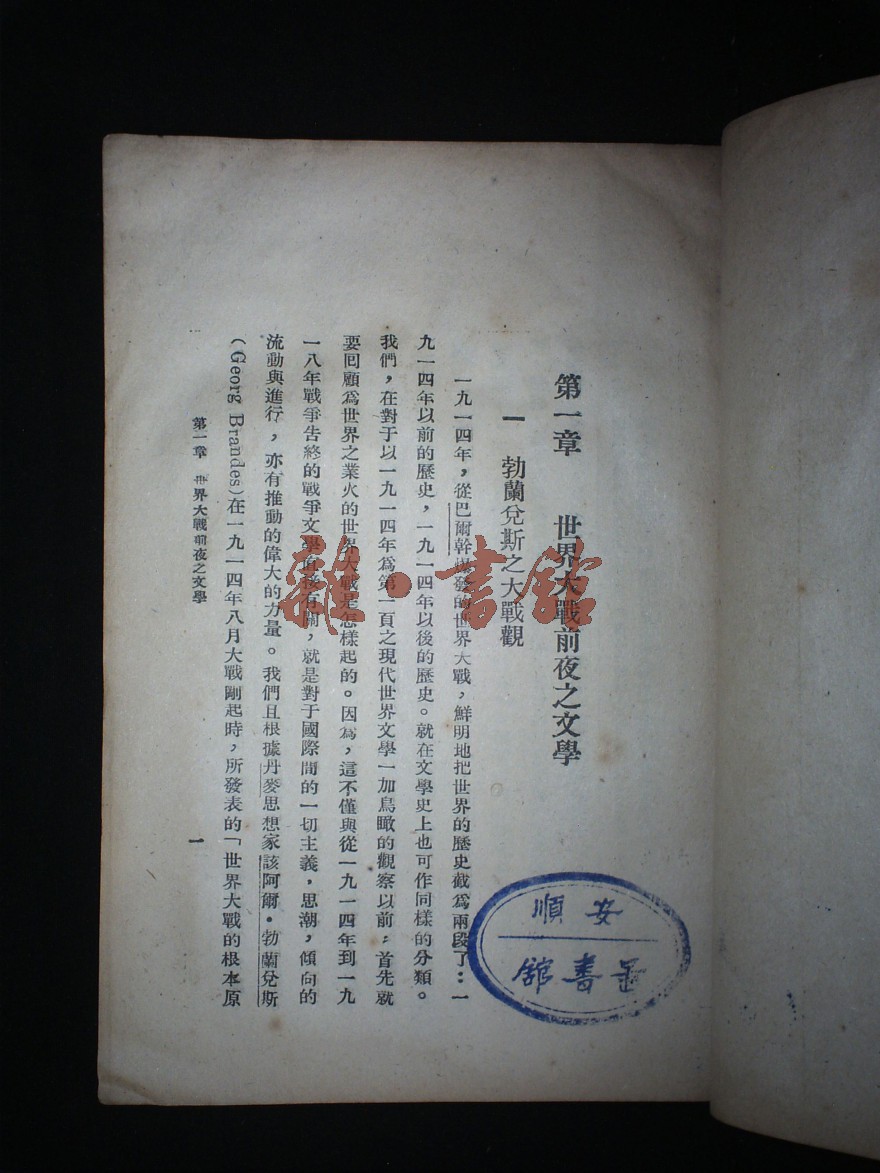 第一章　世界大戰前夜之文學
一　勃蘭兌斯之大戰觀
一九一四年，從巴爾幹爆發的世界大戰，鮮明地把世界的歷史截爲兩段了：一
九一四年以前的歷史，一九一四年以後的歷史。就在文學史上也可作同樣的分類。
我們，在對于以一九一四年爲第一頁之現代世界文學一加鳥瞰的觀察以前，首先就
要囘顧爲世界之業火的世界大戰是怎樣起的。因爲，這不僅與從一九一四年到一九
一八年戰爭告終的戰爭文學直接有關，就是對于國際間的一切主義，思潮，傾向的
流動與進行，亦有推動的偉大的力量。我們且根據丹麥思想家該阿爾・勃蘭兌斯
（Georg Brandes）在一九一四年八月大戰剛起時，所發表的「世界大戰的根本原
第一章　世界大戰前夜之文學
一
安順
書館
雜·書館